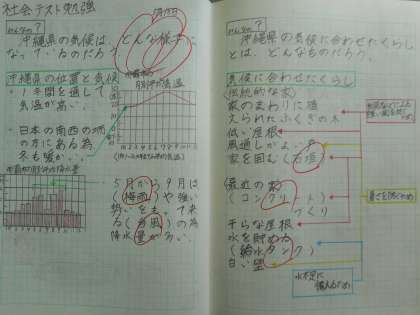 社会テスト勉強
？
沖縄県の気候は、どんな様子に
なっているのだろう？
沖縄県の位置と気候
・1年間を通して
気温が高い。
・日本の南西の端
の方にある為、
冬も暖かい。
5月から9月は
(梅雨)や強い
勢いをもって来
る(台風)の為
降水量が多い。
？
沖縄県の気候に合わせたくらし
とは、どんなものだろう。
気候に合わせたくらし
(伝統的な家)
家のまわりに植
えられたふくぎの木
低い屋根
風通しがよい戸
家を囲む(石垣)
(最近の家)
(コンクリート)
づくり
平らな屋根
水を貯める
(給水タンク)
白い壁
暑さを防ぐため
水不足に
備えるため